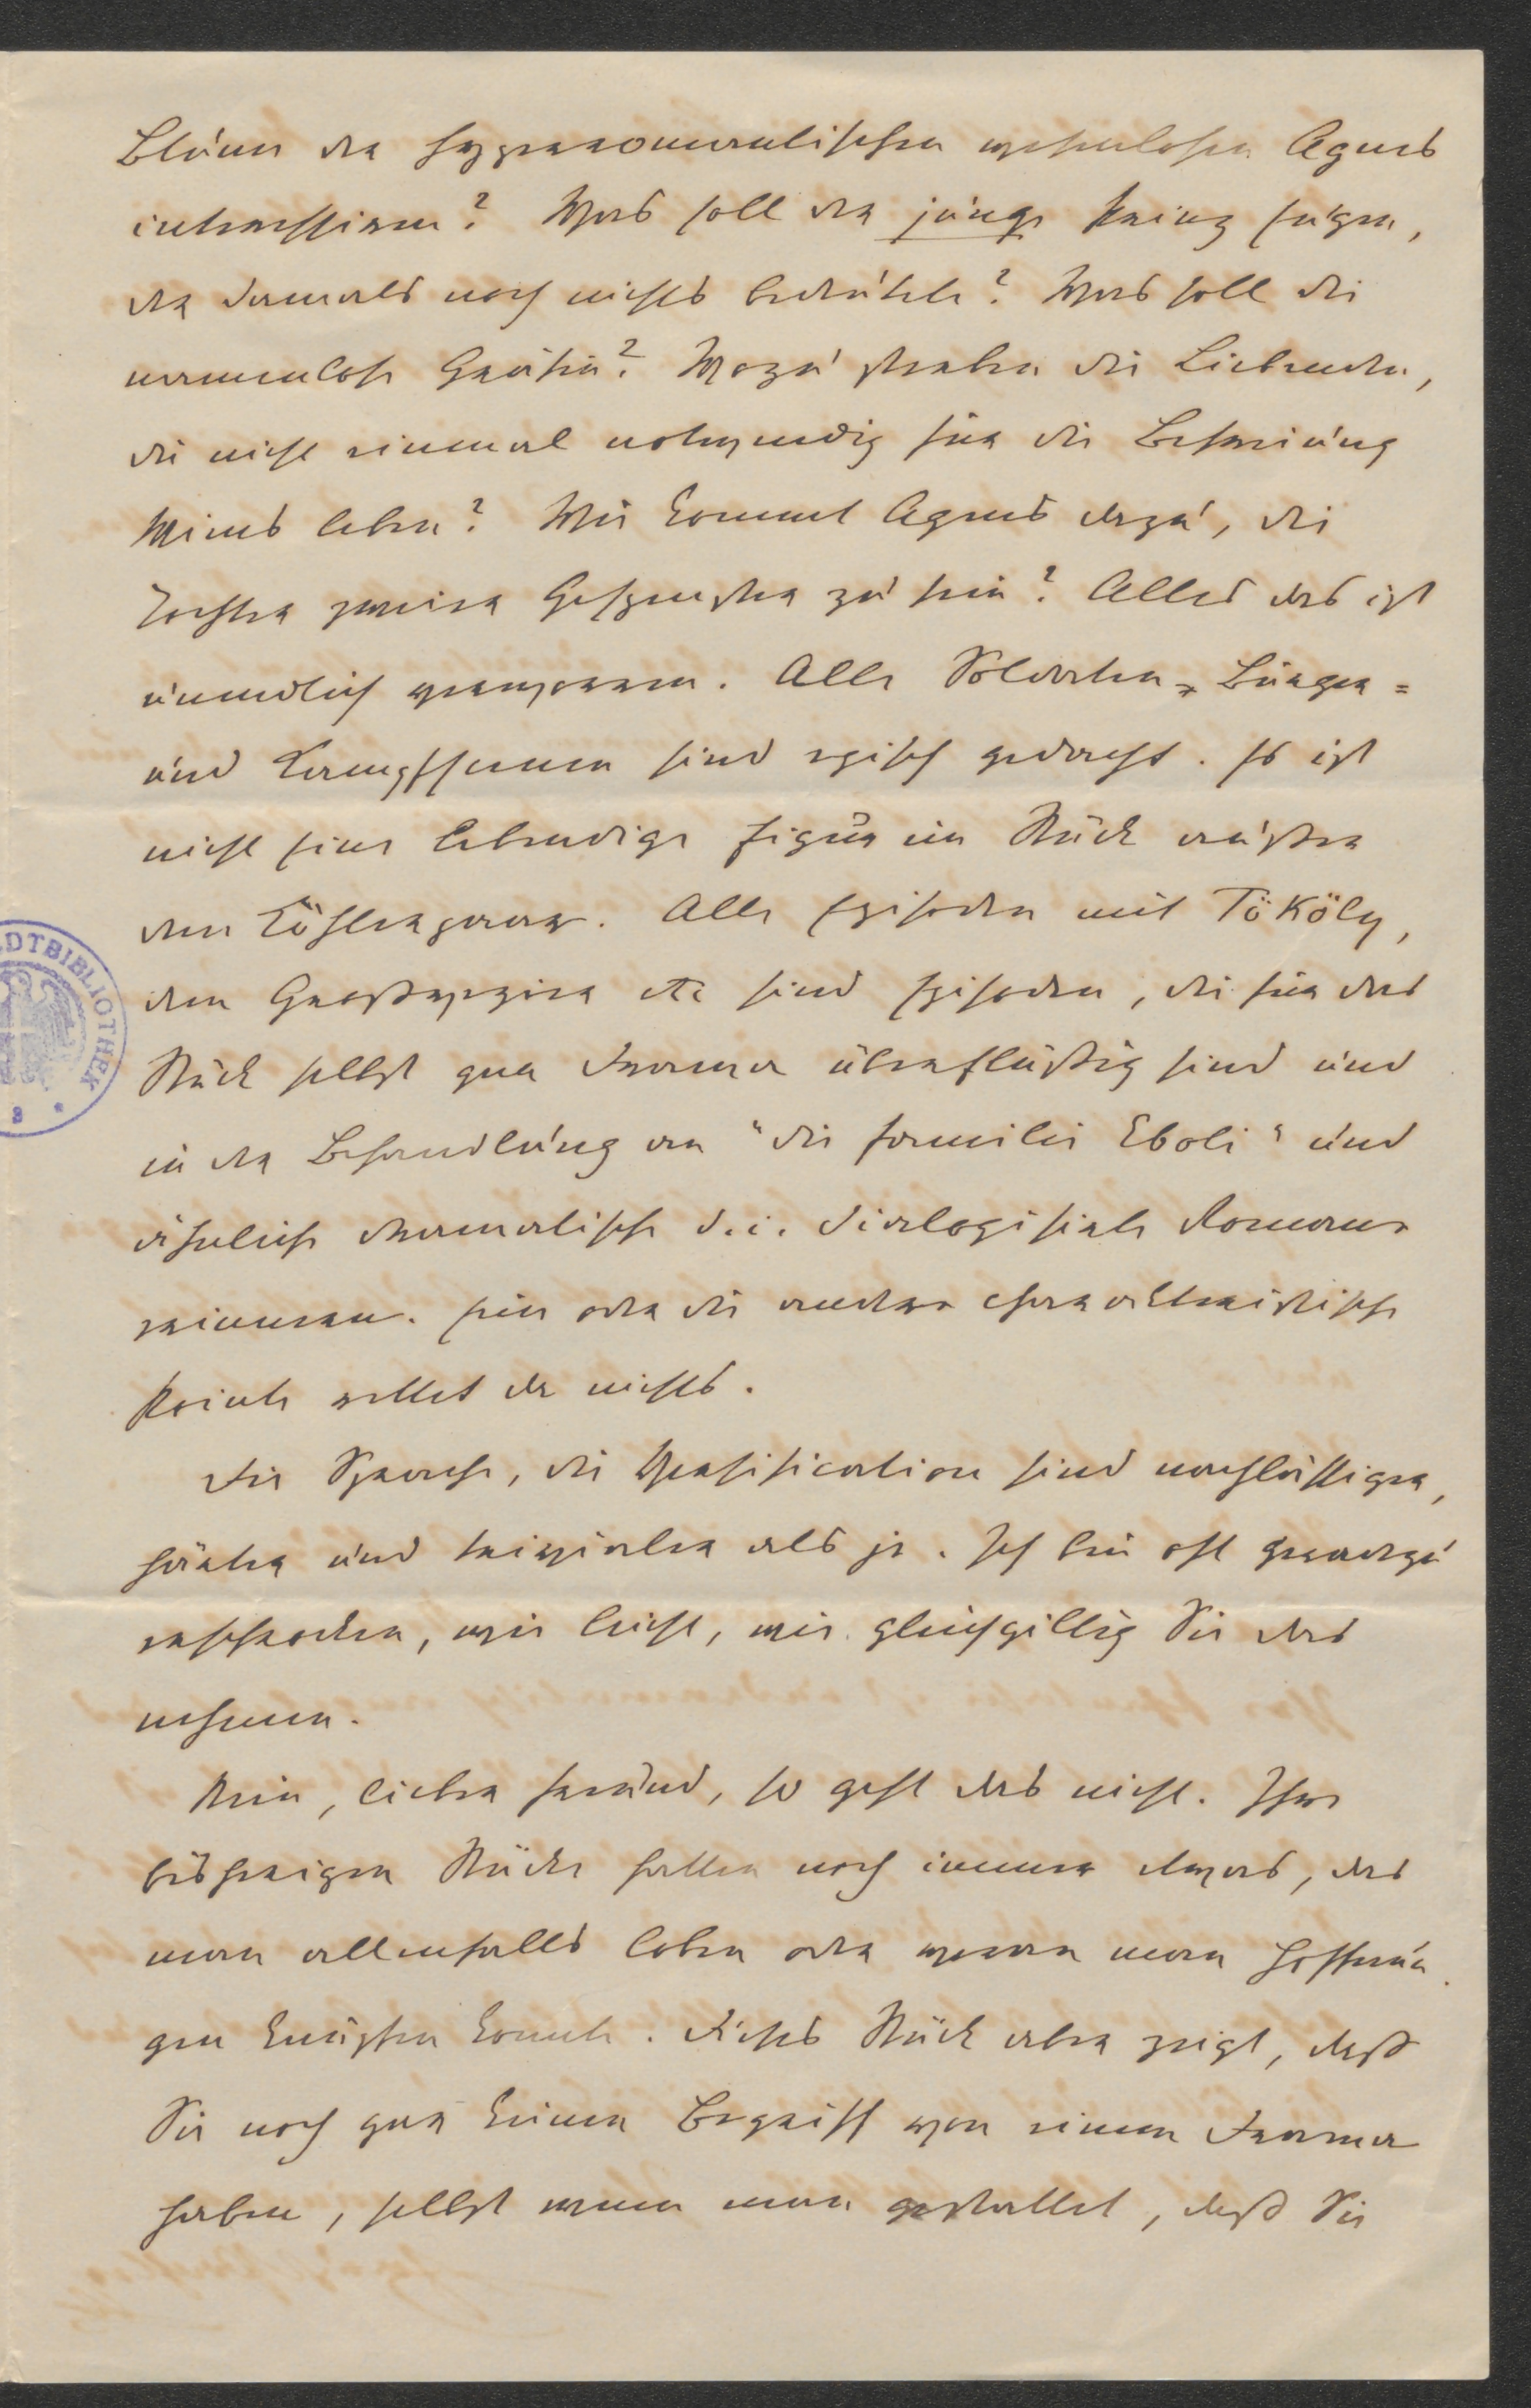 Blüme der hyperromantischen wesenlosen Agnes
interessiren? Was soll der junge Prinz Eugen,
der damals noch nichts bedeutete? Was soll die
namenlose Gräfin? Wozu sterben die Liebenden,
die nicht einmal nothwendig für die Befreiung
Wiens leben? Wie kommt Agnes dazu, die
Tochter zweier Gespenster zu sein? Alles das ist
unendlich verworren. Alle Soldaten-, Bürger-
und Kampfscenen sind episch gedacht. Es ist
nicht eine lebendige Figur im Stück außer
dem Köhlerpaar. Alle Episoden mit Tököly,
dem Großvezier etc sind Episoden, die für das
Stück selbst qua Drama überflüßig sind und
in der Behandlung an "die Familie Eboli" und
ähnliche dramatische d. i. dialogisirte Romane
erinnern. Eine oder die andere charakteristische
Pointe rettet da nichts.
Die Sprache, die Versification sind nachläßiger,
härter und trivialer als je. Ich bin oft geradezu
erschrocken, wie leicht, wie gleichgiltig Sie das
nehmen.
Nein, lieber Freund, so geht das nicht. Ihre
bisherigen Stücke hatten noch immer etwas, das
man allenfalls loben oder woran man Hoffnun
gen knüpfen konnte. Dieses Stück aber zeigt, daß
Sie noch gar keinen Begriff von einem Drama
haben, selbst wenn man gestattet, daß Sie
DTBIBLIOTHEK